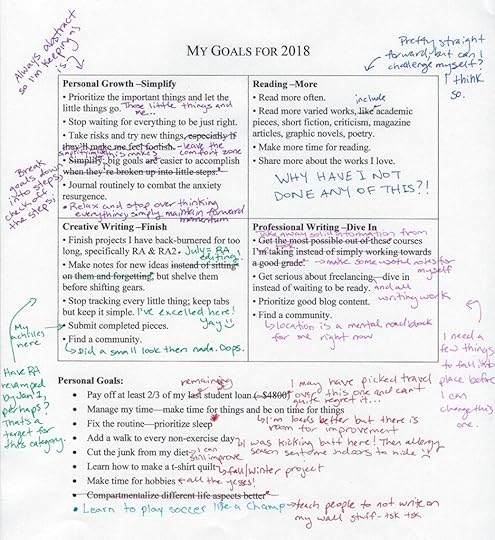 MY GOALS FOR 2018
Always abstract
so I'm keeping
is?
Pretty straight
forward, but can I
challenge myself?
I think
so.
Personal Growth –Simplify
• Prioritize the important things and let the
little things go. Those little things and
me...
• Stop waiting for everything to be just right.
• Take risks and try new things, especially if
they'll make me feel foolish. - leave the
comfort zone
• Simplify; big goals are easier to accomplish
when they're broken up into little steps.
• Journal routinely to combat the anxiety
resurgence.
• Relax and stop over thinking
everything simply maintain forward
momentum
Break
goals down
into steps,
check off
the steps!
Reading –More
• Read more often.
include
• Read more varied works, like academic
pieces, short fiction, criticism, magazine
articles, graphic novels, poetry.
• Make more time for reading.
• Share more about the works I love.
WHY HAVE I NOT
DONE ANY OF THIS?!
Creative Writing –Finish
• Finish projects I have back-burnered for too
long, specifically RA & RA2. • July = RA
editing!
• Make notes for new ideas instead of sitting
on them and forgetting, but shelve them
before shifting gears.
• Stop tracking every little thing; keep tabs
but keep it simple. I've excelled here!
Yay
• Submit completed pieces.
• Find a community.
Did a small look then nada. Oops.
My
achilles
here
Have RA
revamped
by Jan 1,
perhaps?
That's a
target for
this category.
Professional Writing –Dive In
Take away solid information from
• Get the most possible out of these courses
I'm taking instead of simply working towards
a good grade. - make some useful notes for
myself
• Get serious about freelancing, dive in
instead of waiting to be ready. and all
writing work
• Prioritize good blog content.
• Find a community.
location is a mental roadblock
for me right now
I need a
few things
to fall into
place before
I can
change this
one.
Personal Goals:
remaining
• Pay off at least 2/3 of my last student loan (~$4800) I may have picked travel
over this one and can't
quite regret it...
• Manage my time—make time for things and be on time for things
• Fix the routine—prioritize sleep
I'm loads better but there is
room for improvement
• Add a walk to every non-exercise day
I was kicking butt here! Then allergy
season sent me indoors to hide
• Cut the junk from my diet I can
still improve
• Learn how to make a t-shirt quilt fall/Winter project
• Make time for hobbies all the yesses!
• Compartmentalize different life aspects better
• Learn to play soccer like a champ teach people to not write on
my wall stuff - tsk tsk